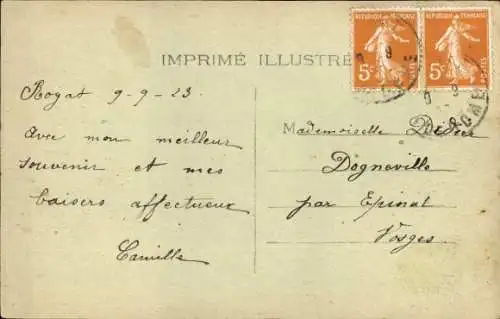 IMPRIMÉ ILLUSTRÉ
REPUBLIQUE FRANÇAISE
5c
POSTES
REPUBLIQUE FRANÇAISE
5c
POSTES
Royat 9-9-23
Avec mon meilleur
souvenir et mes
baisers affectueux
Camille
Mademoiselle
Dogneville
par Epinal
Vosges